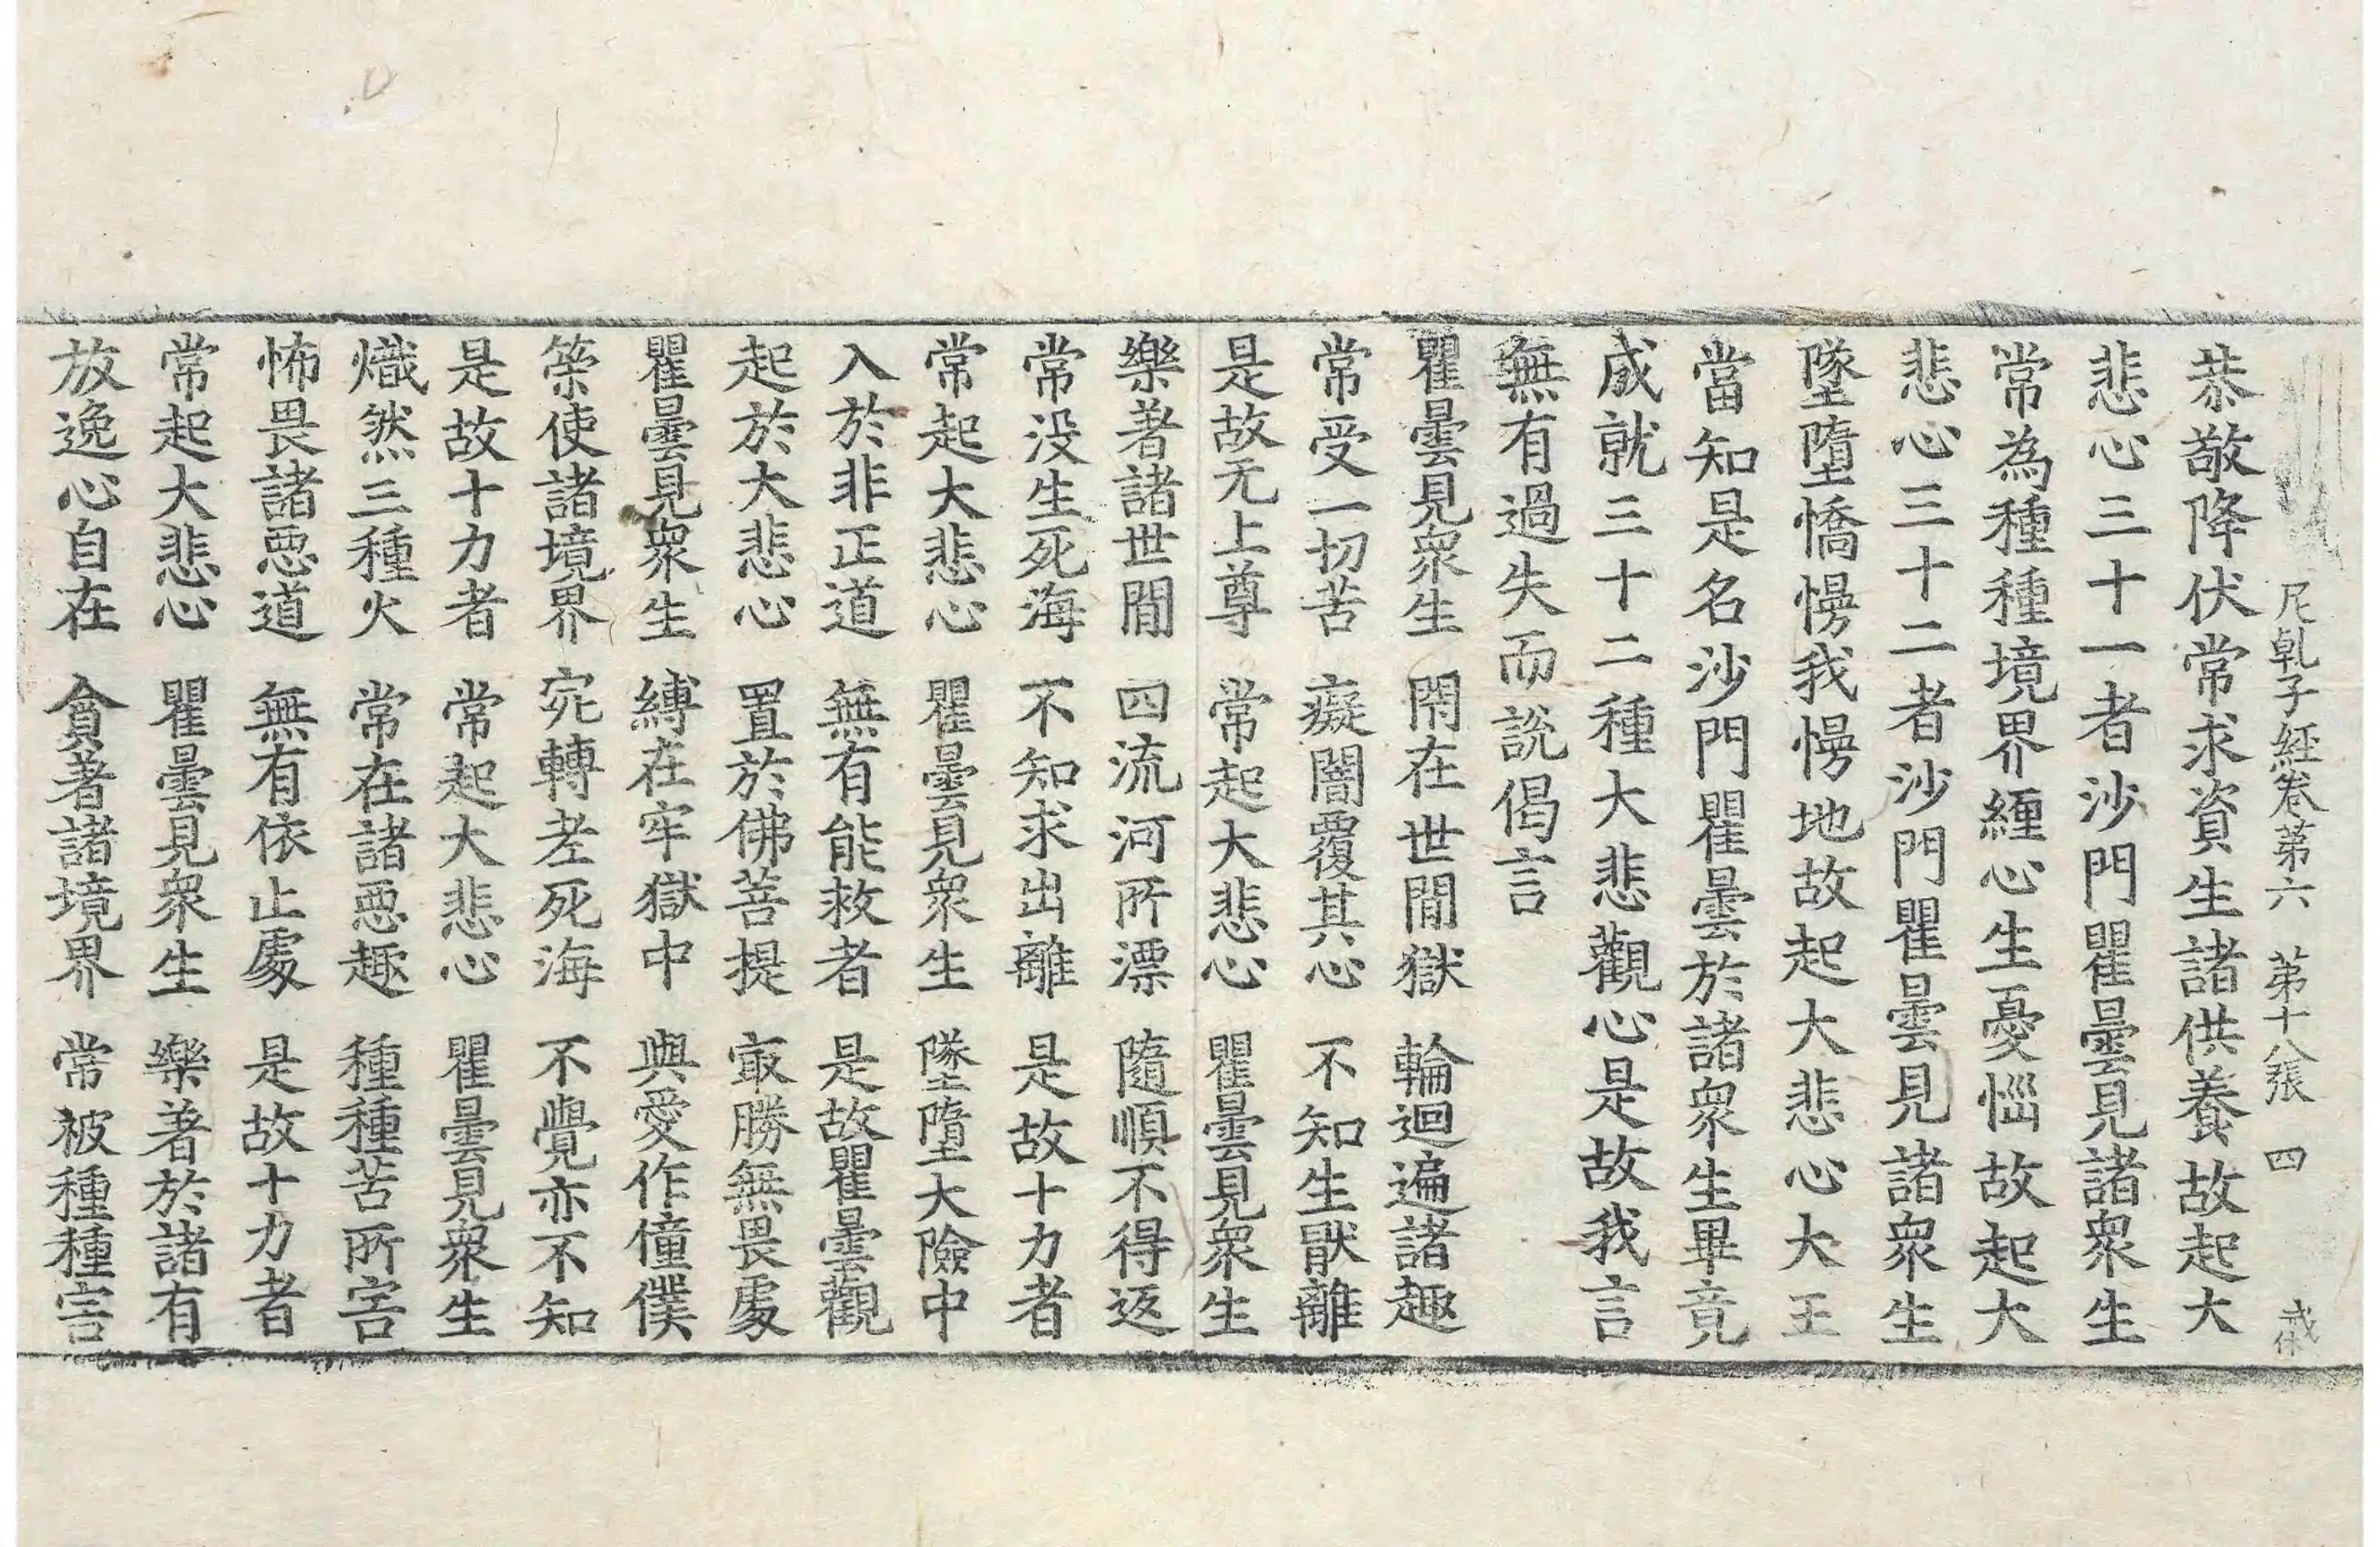 尼乹子経卷苐六　苐十八張　四
恭敬降伏常求資生諸供養故起大
悲心三十一者沙門瞿曇見諸衆生
常為種種境界緾心生憂惱故起大
悲心三十二者沙門瞿曇見諸衆生
墜墮憍慢我慢地故起大悲心大王
當知是名沙門瞿曇於諸衆生畢竟
成就三十二種大悲觀心是故我言
無有過失而說偈言
瞿曇見衆生　閇在世間獄　輪迴遍諸趣
常受一切苦　癡闇覆其心　不知生猒離
是故无上尊　常起大悲心　瞿曇見衆生
樂著諸世間　四流河所漂　隨順不得返
常没生死海　不知求出離　是故十力者
常起大悲心　瞿曇見衆生　墜墮大險中
入於非正道　無有能救者　是故瞿曇觀
起於大悲心　置於佛菩提　㝡勝無畏處
瞿曇見衆生　縛在牢獄中　與愛作僮僕
策使諸境界　宛轉老死海　不覺亦不知
是故十力者　常起大悲心　瞿曇見衆生
熾然三種火　常在諸惡趣　種種苦所害
怖畏諸惡道　無有依止處　是故十力者
常起大悲心　瞿曇見衆生　樂著於諸有
放逸心自在　貪著諸境界　常被種種害